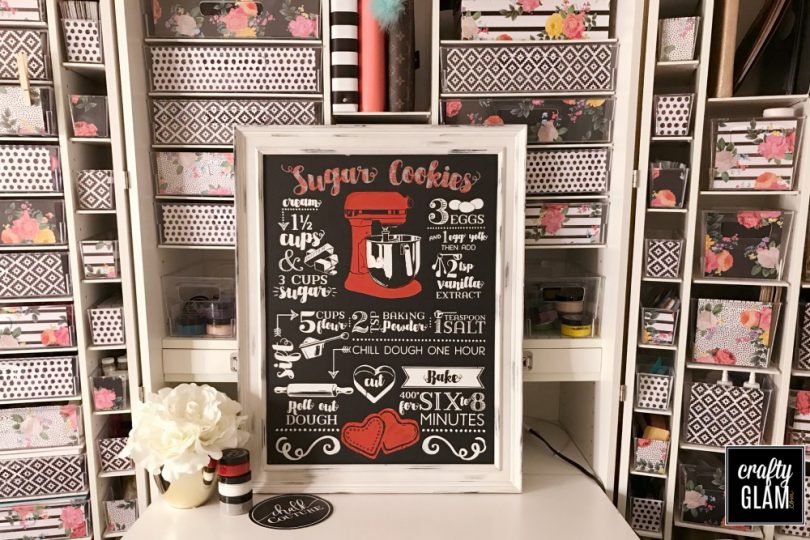 Sugar Cookies
cream
1½
cups
&
3 CUPS
sugar
3 EGGS
AND 1 egg yolk
THEN ADD
2 tsp
vanilla
EXTRACT
sift
5 CUPS flour
2 TSP BAKING Powder
1 TEASPOON SALT
CHILL DOUGH ONE HOUR
Roll out
DOUGH
cut
Bake
400° for SIX to 8
MINUTES
chalk
COUTURE
crafty
GLAM
.com